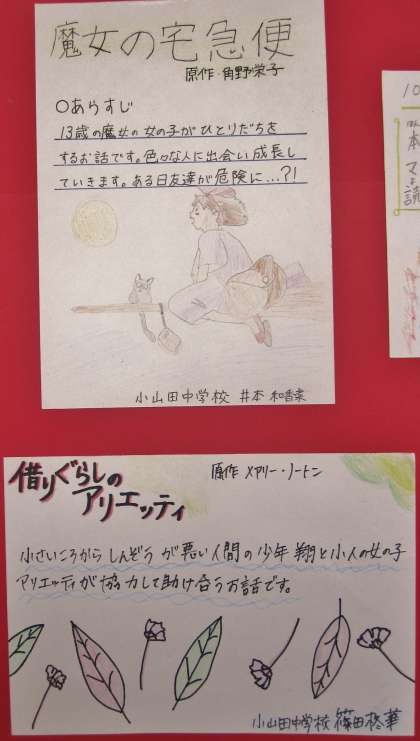 魔女の宅急便
原作・角野栄子
○あらすじ
13歳の魔女の女の子がひとりだちを
するお話です。色々な人に出会い成長し
ていきます。ある日友達が危険に…?!
小山田中学校 井本 和香菜
借りぐらしの
アリエッティ
原作 メアリー・ノートン
小さいころからしんぞうが悪い人間の少年 翔と小人の女の子
アリエッティが協力して助け合うお話です。
小山田中学校 篠田
10
本